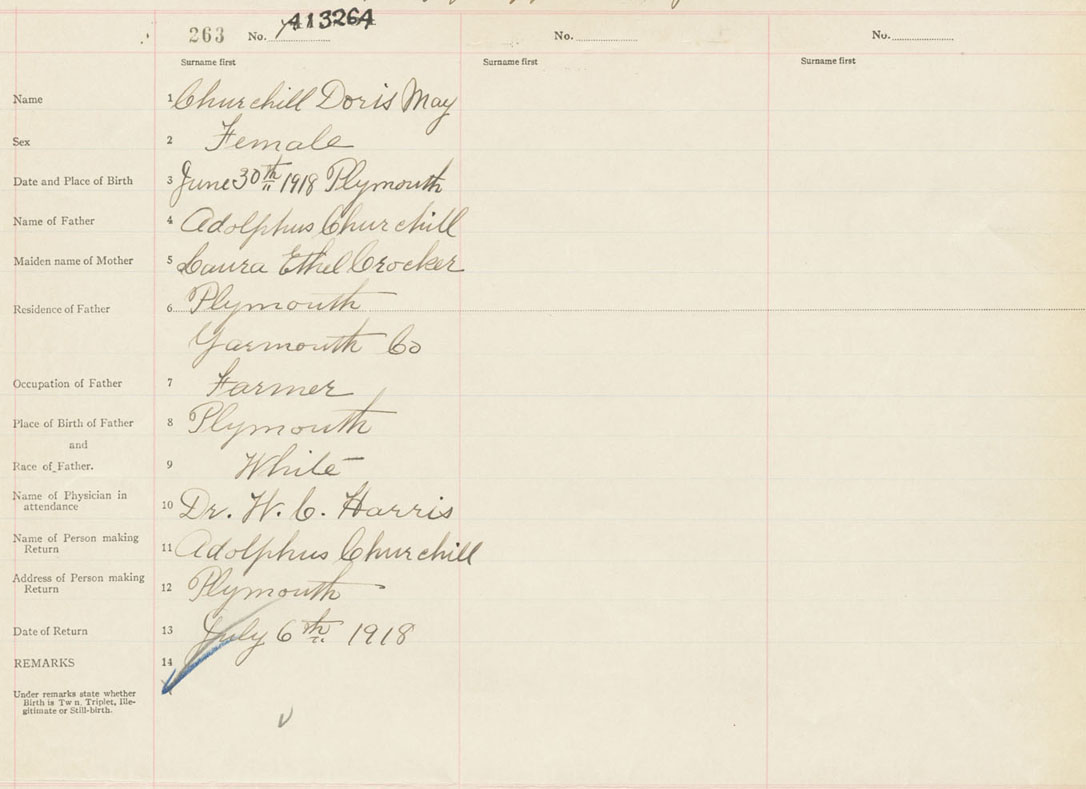 263 No. 413264 No. No.
Surname first Surname first Surname first
Name 1 Churchill Doris May
Sex 2 Female
Date and Place of Birth 3 June 30th 1918 Plymouth
Name of Father 4 Adolphus Churchill
Maiden name of Mother 5 Laura Ethel Crocker
Residence of Father 6 Plymouth
Yarmouth Co
Occupation of Father 7 Farmer
Place of Birth of Father 8 Plymouth
and
Race of Father. 9 White
Name of Physician in
attendance 10 Dr. W. C. Harris
Name of Person making
Return 11 Adolphus Churchill
Address of Person making
Return 12 Plymouth
Date of Return 13 July 6th 1918
REMARKS 14
Under remarks state whether
Birth is Tw n, Triplet, Ille-
gitimate or Still-birth.